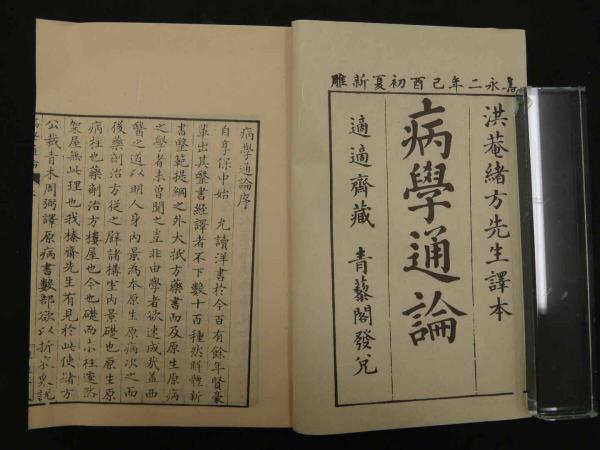 嘉永二年己酉初夏新雕
洪菴緒方先生譯本
病學通論
適適齋藏 青藜閣發兌
病學通論序
自享保中始 允讀洋書於今百有餘年賢豪
輩出其醫書經譯者不下數十百種然解體新
書醫範提綱之外大抵方藥書而及原生原病
之學者未曾聞之豈非由學者欲速成哉蓋西
醫之道以明人身內景為本原生原病次之而
後藥劑治方從之辟諸構室內景礎也原生原
病柱也藥劑治方樓屋也今也礎而不柱遽然
架屋無此理也我榛齋先生有見於此使緒方
公裁青木周弼譯原病書數部欲以折衷眾說